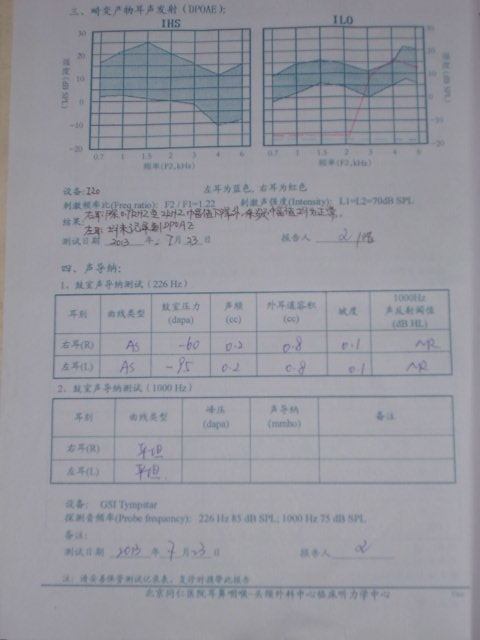 三、畸变产物耳声发射(DPOAE):
IHS ILO
30 30
20 20
10 10
0 0
-10 -10
-20 -20
强度(dB SPL) 强度(dB SPL)
0.7 1 1.5 2 3 4 6 0.7 1 1.5 2 3 4 6
频率(F2,kHz) 频率(F2,kHz)
设备: ILO 左耳为蓝色，右耳为红色
刺激频率比(Freq ratio): F2 / F1=1.22 刺激声强度(Intensity): L1=L2=70dB SPL
结果: 右耳: 除0.7kHz至2kHz幅值下降外, 余频率幅值均为正常.
左耳: 均未记录到DPOAE
测试日期 2013 年 7 月 23 日 报告人
四、声导纳:
1、鼓室声导纳测试（226 Hz）
耳别 曲线类型 鼓室压力 (dapa) 声顺 (cc) 外耳道容积 (cc) 坡度 1000Hz 声反射阈值 (dB HL)
右耳(R) As -60 0.2 0.8 0.1 NR
左耳(L) As -95 0.2 0.8 0.1 NR
2、鼓室声导纳测试（1000 Hz）
耳别 曲线类型 峰压 (dapa) 声导纳 (mmho) 备注
右耳(R) 平坦
左耳(L) 平坦
设备: GSI Tympstar
探测音频率(Probe frequency): 226 Hz 85 dB SPL; 1000 Hz 75 dB SPL
备注:
测试日期 2013 年 7 月 23 日 报告人
注: 请妥善保管测试记录表，复诊时携带此报告
北京同仁医院耳鼻咽喉-头颈外科中心临床听力学中心